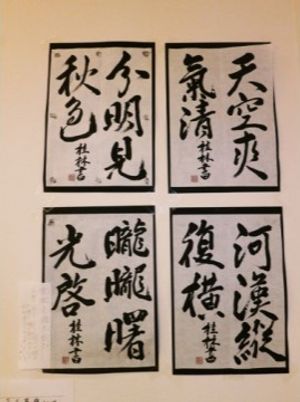 天空爽
氣清
桂林書
分明見
秋色
桂林書
河漢縱
復橫
桂林書
朧朧曙
光啓
桂林書